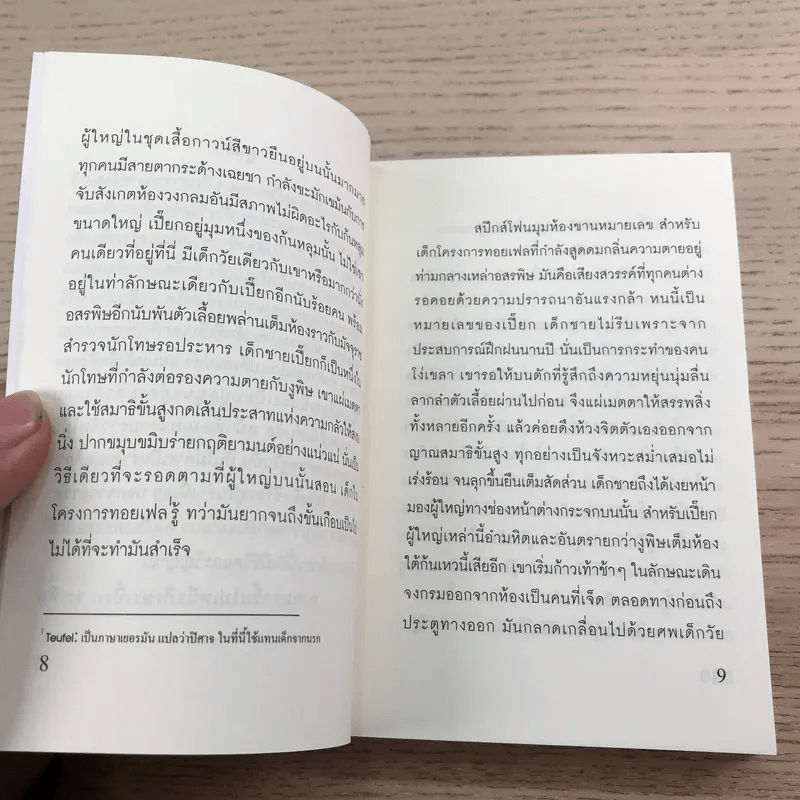 ผู้ใหญ่ในชุดเสื้อกาวน์สีขาวยืนอยู่บนนั้นมากมาย
ทุกคนมีสายตากระด้างเฉยชา กำลังขะมักเขม้นกับการ
จับสังเกตห้องวงกลมอันมีสภาพไม่ผิดอะไรกับก้นหลุม
ขนาดใหญ่ เปี๊ยกอยู่มุมหนึ่งของก้นหลุมนั้น ไม่ใช่เขา
คนเดียวที่อยู่ที่นี่ มีเด็กวัยเดียวกับเขาหรือมากกว่านั้น
อยู่ในท่าลักษณะเดียวกับเปี๊ยกอีกนับร้อยคน พร้อม
อสรพิษอีกนับพันตัวเลื้อยพล่านเต็มห้องราวกับมัจจุราช
สำรวจนักโทษรอประหาร เด็กชายเปี๊ยกก็เป็นหนึ่งใน
นักโทษที่กำลังต่อรองความตายกับงูพิษ เขาแผ่เมตตา
และใช้สมาธิขั้นสูงกดเส้นประสาทแห่งความกลัวให้สงบ
นิ่ง ปากขมุบขมิบร่ายกฤติยามนต์อย่างแน่วแน่ นั่นเป็น
วิธีเดียวที่จะรอดตามที่ผู้ใหญ่บนนั้นสอน เด็กใน
โครงการทอยเฟล¹รู้ ทว่ามันยากจนถึงขั้นเกือบเป็นไป
ไม่ได้ที่จะทำมันสำเร็จ
¹ Teufel: เป็นภาษาเยอรมัน แปลว่าปีศาจ ในที่นี้ใช้แทนเด็กจากนรก
8
สปีกส์โฟนมุมห้องขานหมายเลข สำหรับ
เด็กโครงการทอยเฟลที่กำลังสูดดมกลิ่นความตายอยู่
ท่ามกลางเหล่าอสรพิษ มันคือเสียงสวรรค์ที่ทุกคนต่าง
รอคอยด้วยความปรารถนาอันแรงกล้า หนนี้เป็น
หมายเลขของเปี๊ยก เด็กชายไม่รีบเพราะจาก
ประสบการณ์ฝึกฝนนานปี นั่นเป็นการกระทำของคน
โง่เขลา เขารอให้บนตักที่รู้สึกถึงความหยุ่นนุ่มลื่น
ลากลำตัวเลื้อยผ่านไปก่อน จึงแผ่เมตตาให้สรรพสิ่ง
ทั้งหลายอีกครั้ง แล้วค่อยดึงห้วงจิตตัวเองออกจาก
ญาณสมาธิขั้นสูง ทุกอย่างเป็นจังหวะสม่ำเสมอไม่
เร่งร้อน จนลุกขึ้นยืนเต็มสัดส่วน เด็กชายถึงได้เงยหน้า
มองผู้ใหญ่ทางช่องหน้าต่างกระจกบนนั้น สำหรับเปี๊ยก
ผู้ใหญ่เหล่านี้อำมหิตและอันตรายกว่างูพิษเต็มห้อง
ใต้ก้นเหวนี้เสียอีก เขาเริ่มก้าวเท้าช้าๆ ในลักษณะเดิน
จงกรมออกจากห้องเป็นคนที่เจ็ด ตลอดทางก่อนถึง
ประตูทางออก มันกลาดเกลื่อนไปด้วยศพเด็กวัย
9